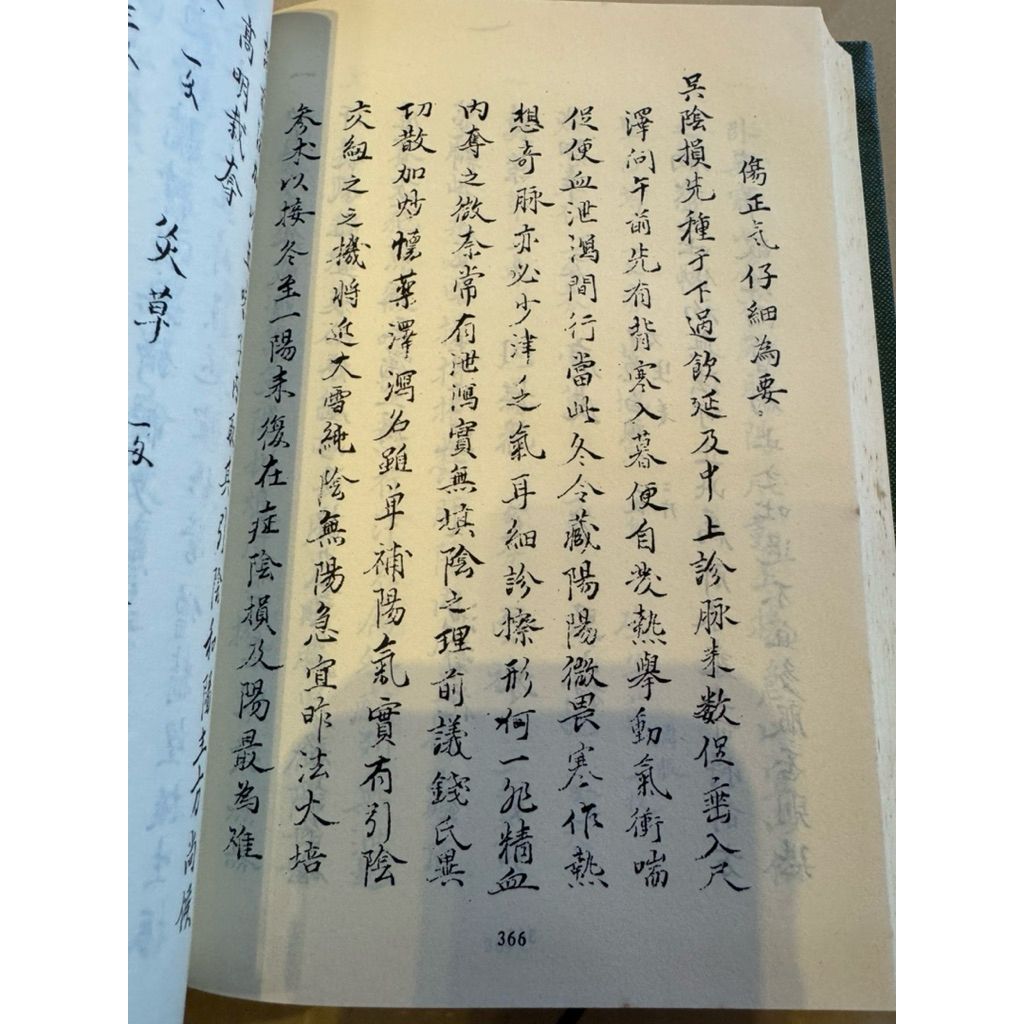 傷正气仔細為要。
吳陰損先種于下過飲延及中上診脉来数促垂入尺
澤问午前先有背寒入暮便自发熱舉動氣衝喘
促便血泄瀉間行當此冬令藏陽陽微畏寒作熱
想奇脉亦必少津乏氣耳細診擦形何一非精血
內奪之徵柰常有泄瀉實無填陰之理前議錢氏異
切散加炒懷藥澤瀉名雖单補陽氣實有引陰
交紐之之機将近大雪純陰無陽急宜昨法大培
參术以接冬至一陽来復在症陰損及陽最為难
引陰和陽主方尚候
高明裁奪
一文
炙草
一文
366